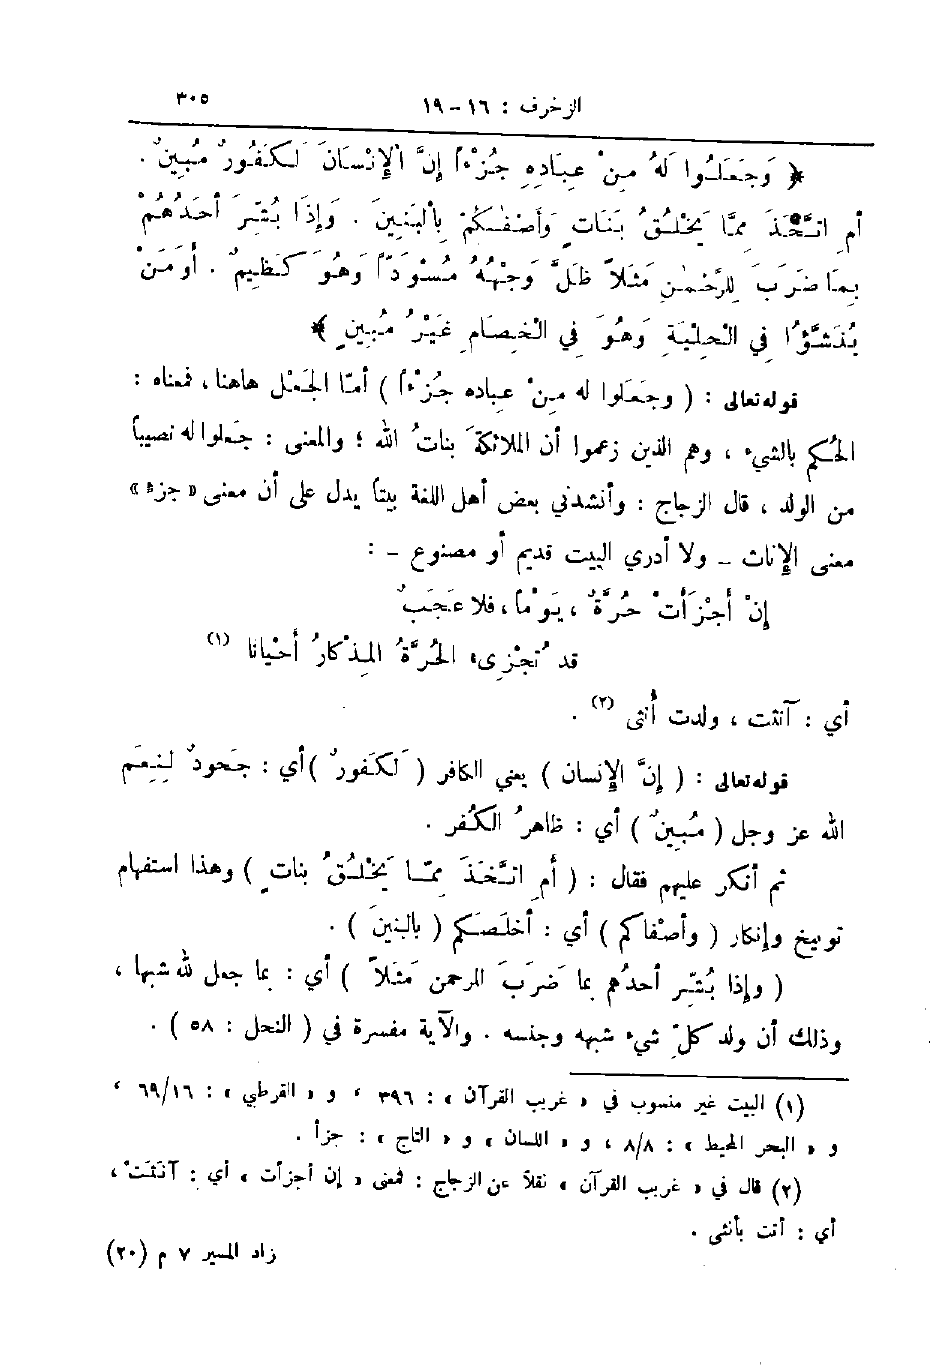 الزخرف : ١٦ - ١٩ ٣٠٥
﴿ وَجَعَلُوا لَهُ مِنْ عِبَادِهِ جُزْءاً إِنَّ الْإِنْسَانَ لَكَفُورٌ مُبِينٌ .
أَمِ اتَّخَذَ مِمَّا يَخْلُقُ بَنَاتٍ وَأَصْفٰكُمْ بِالْبَنِينَ . وَإِذَا بُشِّرَ أَحَدُهُمْ
بِمَا ضَرَبَ لِلرَّحْمٰنِ مَثَلاً ظَلَّ وَجْهُهُ مُسْوَدّاً وَهُوَ كَظِيمٌ . أَوَمَنْ
يُنَشَّؤُا فِي الْحِلْيَةِ وَهُوَ فِي الْخِصَامِ غَيْرُ مُبِينٍ ﴾
قوله تعالى : ( وجَعَلوا له مِنْ عِباده جُزْءاً ) أمّا الجَعْل هاهنا ، فمعناه :
الحُكم بالشيء ، وهم الذين زعموا أن الملائكةَ بناتُ الله ؛ والمعنى : جَعلوا له نصيباً
من الولد ، قال الزجاج : وأنشدني بعض أهل اللغة بيتاً يدل على أن معنى « جزء »
معنى الإناث – ولا أدري البيت قديم أو مصنوع – :
إنْ أَجْزَأَتْ حُرَّةٌ ، يَوْماً ، فلا عَجَبٌ
قد تُجْزِىء الحُرَّةُ المِذْكارُ أَحْيانا (١)
أي : آنثت ، ولدت أُنثى (٢) .
قوله تعالى : ( إنَّ الإنسان ) يعني الكافر ( لَكَفورٌ ) أي : جَحودٌ لنِعَم
الله عز وجل ( مُبِينٌ ) أي : ظاهرُ الكُفر .
ثم أنكر عليهم فقال : ( أمِ اتَّخَذَ مِمَّا يَخْلُقُ بناتٍ ) وهذا استفهام
توبيخ وإنكار ( وأصْفاكم ) أي : أخلَصَكم ( بالبنينَ ) .
( وإذا بُشِّر أحدُهم بما ضَرَبَ للرحمن مَثَلاً ) أي : بما جعل لله شبهاً ،
وذلك أن ولد كلِّ شيء شبهه وجنسه . والآية مفسرة في ( النحل : ٥٨ ) .
(١) البيت غير منسوب في « غريب القرآن » : ٣٩٦ ، و « القرطبي » : ٦٩/١٦ ،
و « البحر المحيط » : ٨/٨ ، و « اللسان » و « التاج » : جزأ .
(٢) قال في « غريب القرآن » نقلاً عن الزجاج : فمعنى « إن أجزأت » أي : آنَثَتْ ،
أي : أتت بأنثى .
زاد المسير ٧ م (٢٠)